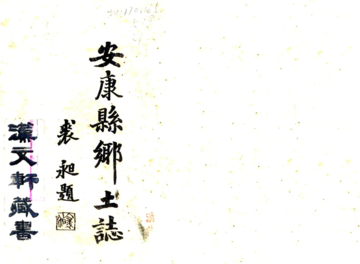 安康縣鄉土誌
裘昶題
漢文軒藏書